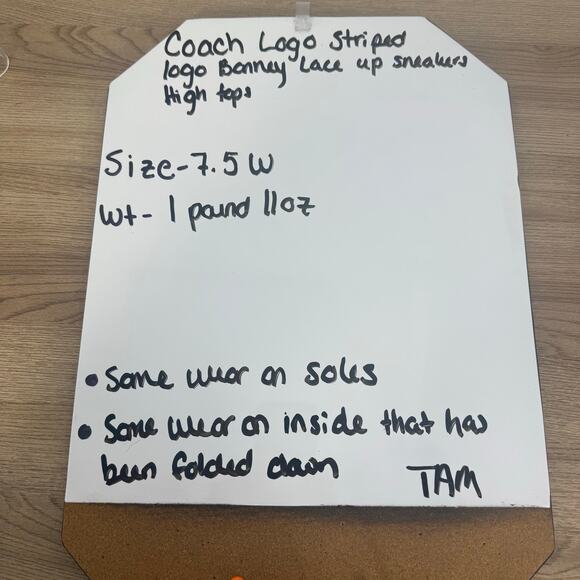 Coach Logo Striped
logo Bonney Lace up sneakers
High tops
Size-7.5 W
Wt- 1 pound 11oz
• Some wear on soles
• Some wear on inside that has
been folded down
TAM